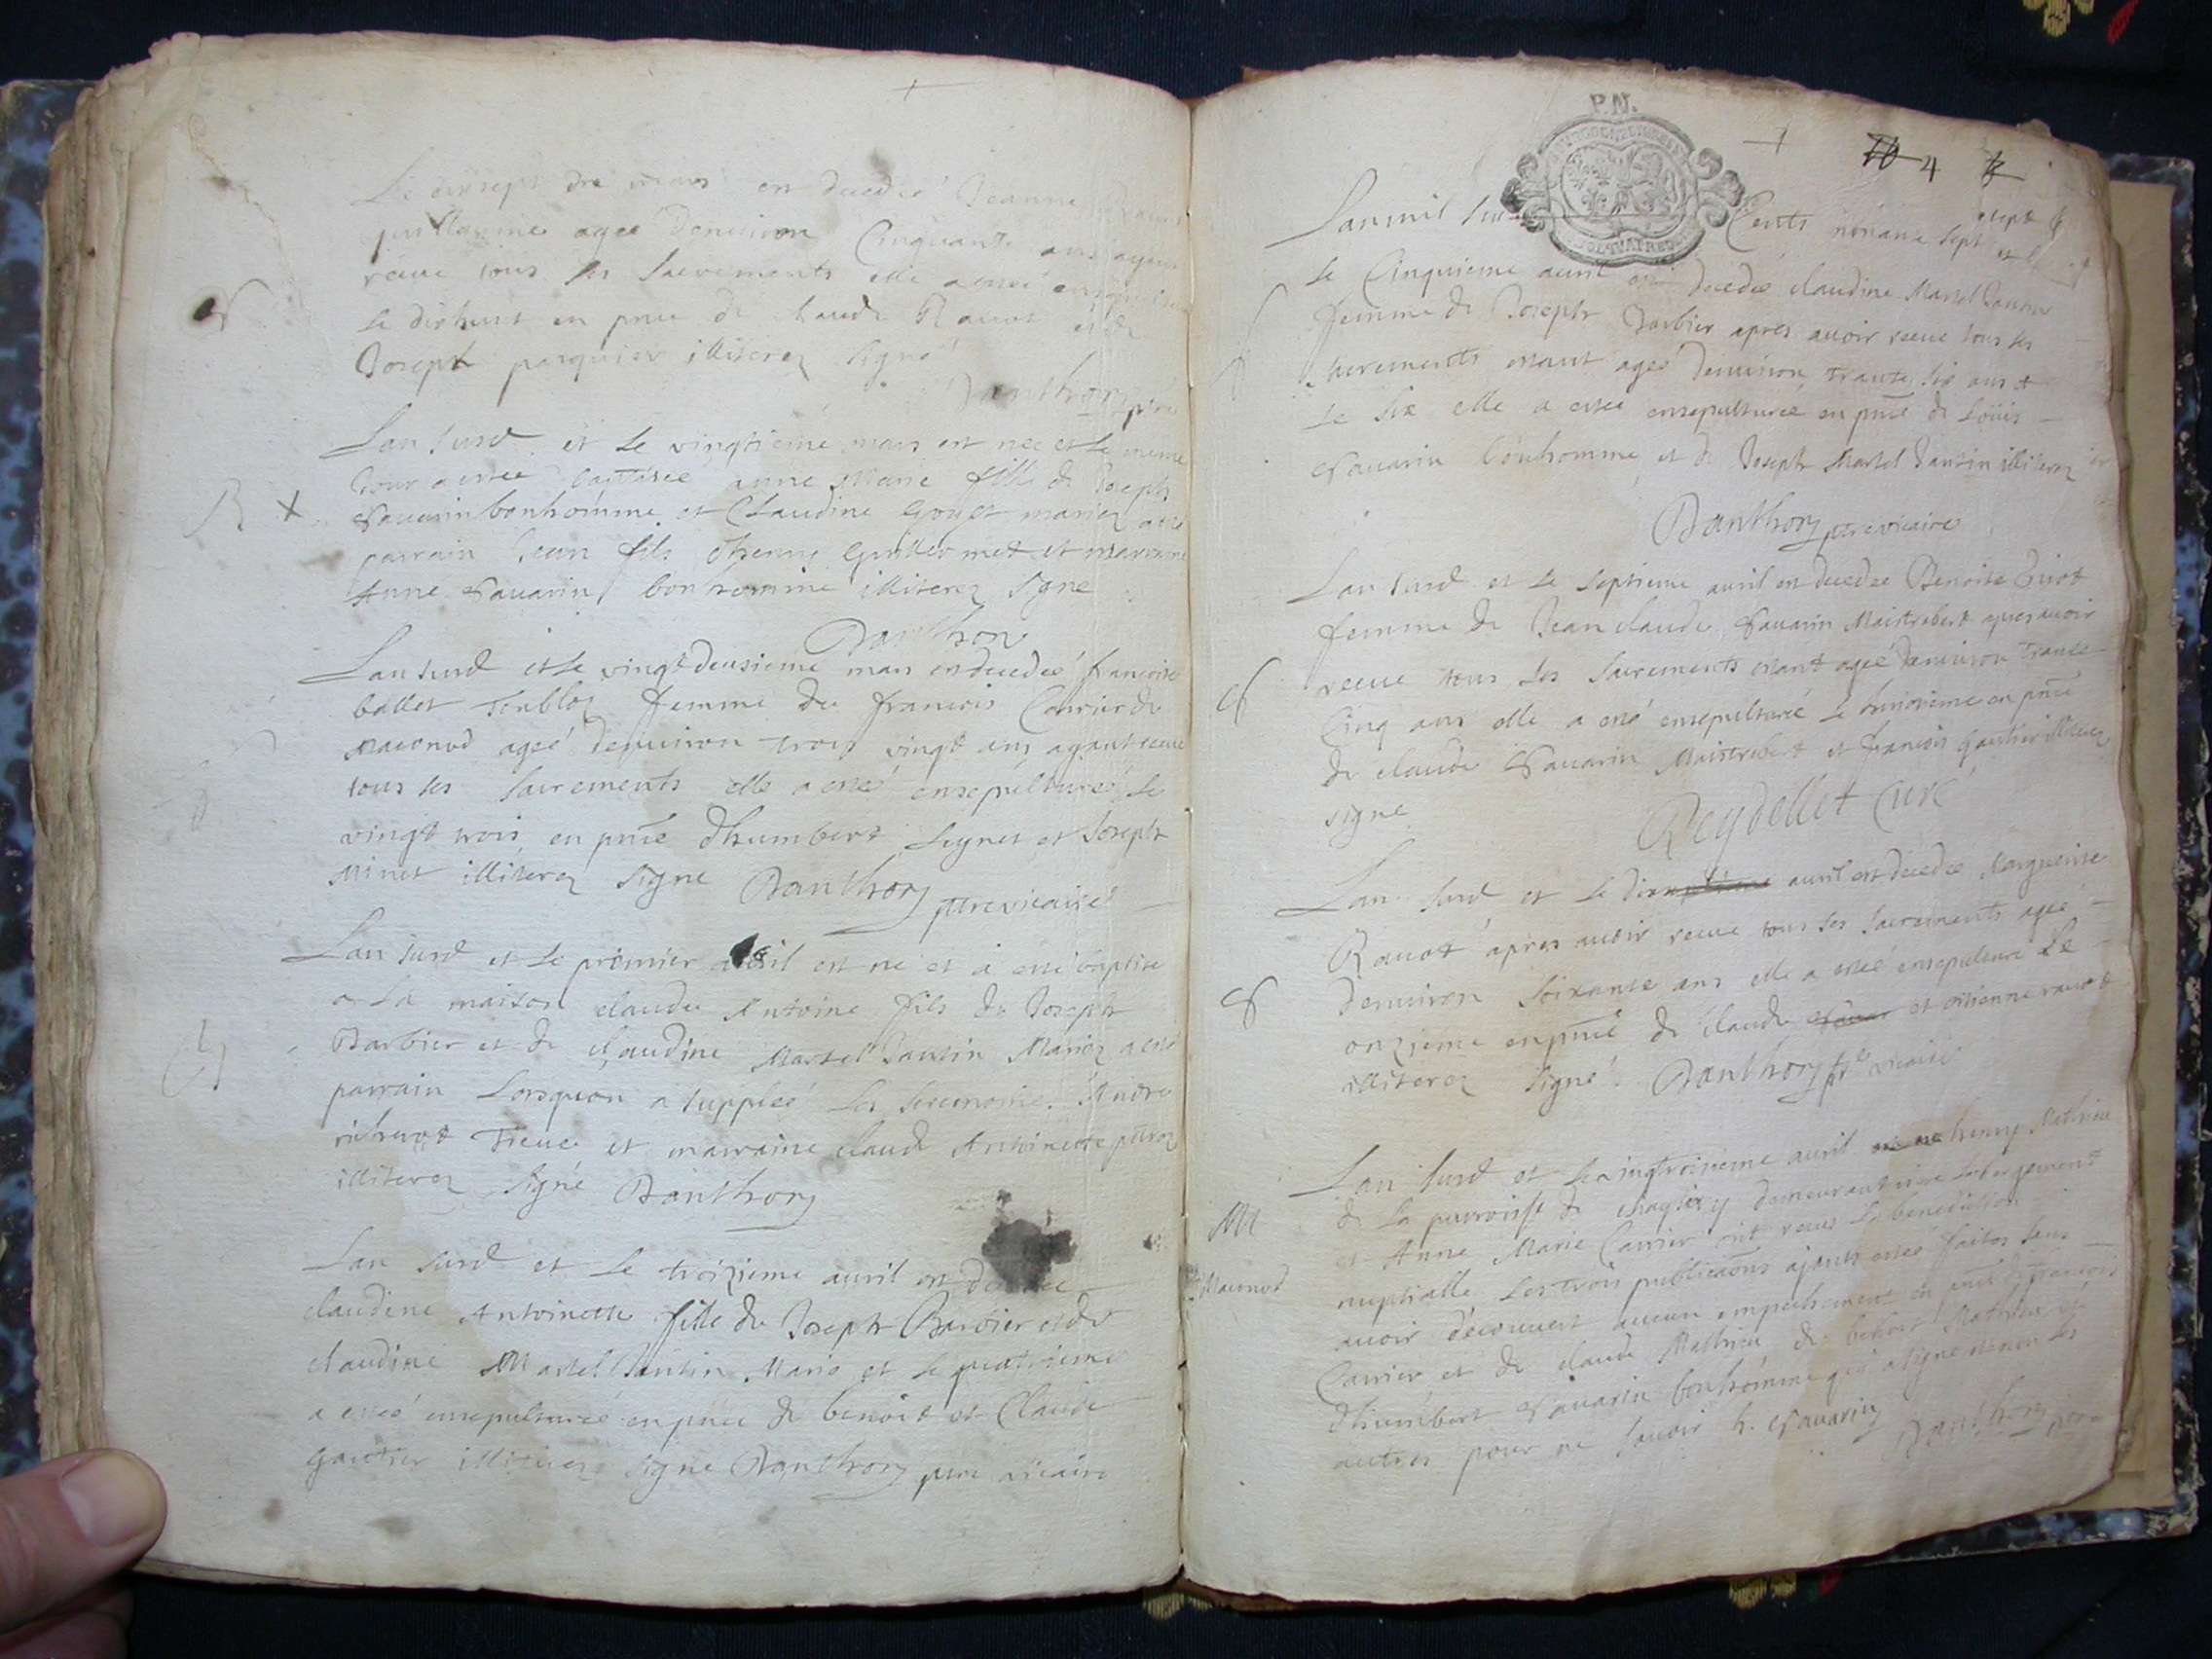 Le dixsept dre mars est decedeé Jeanne
guillarme ageé denuiron Cinquante ans ayant
receue tous les sacrements elle a esteé
le dixhuit en pnce de Claude Rauot et de
Joseph pasquier illiterez signé
Danthon ptre
Lan susd et le vingtieme mars est neé et le meme
Jour a estee baptisee anne Marie fille de Joseph
Sauarin bonhomme et Claudine Gouget mariez a esté
parrain Jean fils dhenry Guillermet et marraine
Anne Sauarin bonhomme illiterez signe
Danthon
Lan susd et le vingtdeusieme mars est decedeé francoise
ballet femme de francois Carrier de
Maconod ageé denuiron trois vingt ans ayant receue
tous les sacrements elle a esteé ensepultureé le
vingt trois en pnce dhumbert et Joseph
Minet illiterez signe Danthon ptre vicaire
Lan susd et le premier auril est né et a esté baptise
a la maison claude Antoine fils de Joseph
Barbier et de claudine Martel Jantin Mariez a esté
parrain Lorsquon a suppleé les ceremonies Andre
et marraine claude Antoinette
illiterez signé Danthon
Lan susd et le troizieme auril est decedee
claudine Antoinette fille de Joseph Barbier et de
claudine Martel Jantin Marié et le quatrieme
a esteé ensepultureé en pnce de benoit et Claude
gautier illiterez signe Danthon ptre vicaire
P.N.
10 4
Lan mil six Cents nonante sept et
le Cinquieme auril est decedeé claudine Martel Jantin
femme de Joseph Barbier apres auoir receue tous les
sacrements estant ageé denuiron trante six ans et
le six elle a esteé ensepultureé en pnce de Loüis
Sauarin bonhomme et de Joseph Martel Jantin illiterez
Danthon ptre vicaire
Lan susd et le septieme auril est decedee Benoite
femme de Jean claude Sauarin Maistrobert apres auoir
receue tous les sacrements estant ageé denuiron Trante
Cinq ans elle a esté ensepultureé le huitieme en pnce
de claude Sauarin Maistrobert et francois Gautier illiterez
signe
Reydellet Curé
Lan susd et le dix auril est decedee Marguerite
Rauot apres auoir receue tous les sacrements ageé
denuiron soixante ans elle a esteé ensepulture le
onzieme en pnce de claude et estienne rauot
illiterez signé Danthon ptre vicaire
M
Maconod
Lan susd et le vingtroisieme auril henry Mathieu
de la parroisse de demeurant
et Anne Marie Carrier ont receus la benediction
nuptialle les trois publications ayants esteé faites sans
auoir decouuert aucun empechement en pnce de francois
Carrier et de claude Mathieu de benoit Mathieu et
dhumbert Sauarin bonhomme qui a signé non les
autres pour ne sauoir h. Sauarin
Danthon ptre